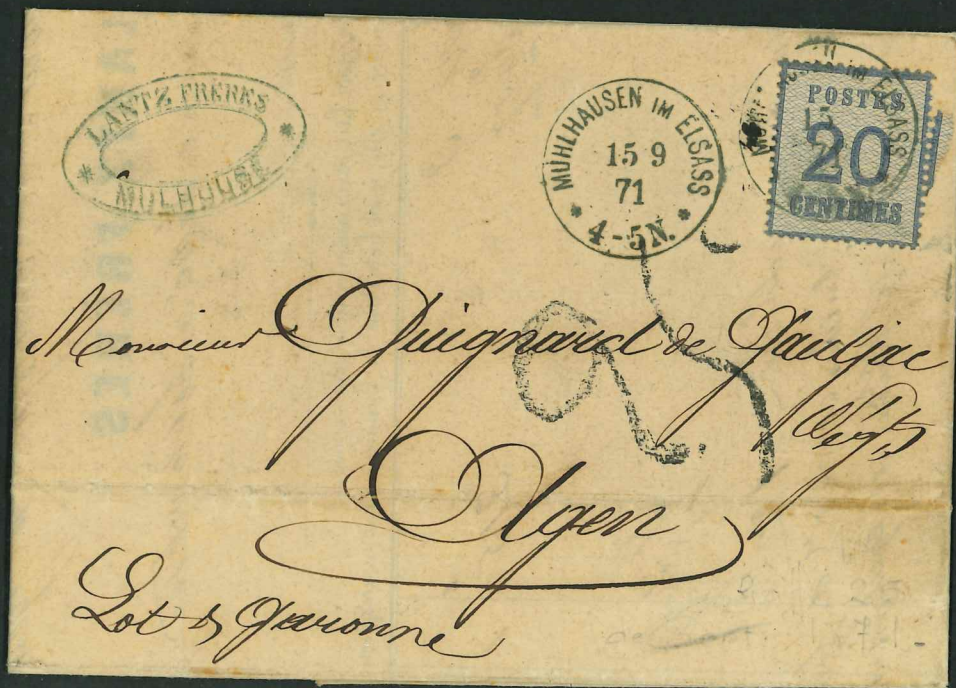 LANTZ FRÈRES
MULHOUSE
MÜHLHAUSEN IM ELSASS
15 9
71
4-5N.
POSTES
20
CENTIMES
25
Monsieur Guignard de
Agen
Lot & Garonne